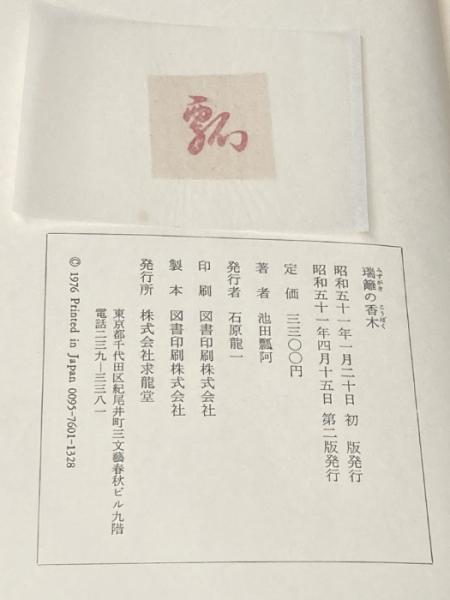 瓢
瑞籬の香木
みずがき こうぼく
昭和五十一年一月二十日 初 版発行
昭和五十一年四月十五日 第二版発行
定 価 三三〇〇円
著 者 池田瓢阿
発行者 石原龍一
印 刷 図書印刷株式会社
製 本 図書印刷株式会社
発行所 株式会社求龍堂
東京都千代田区紀尾井町三文藝春秋ビル九階
電話二三九―三三八一
© 1976 Printed in Japan 0095-7601-1328